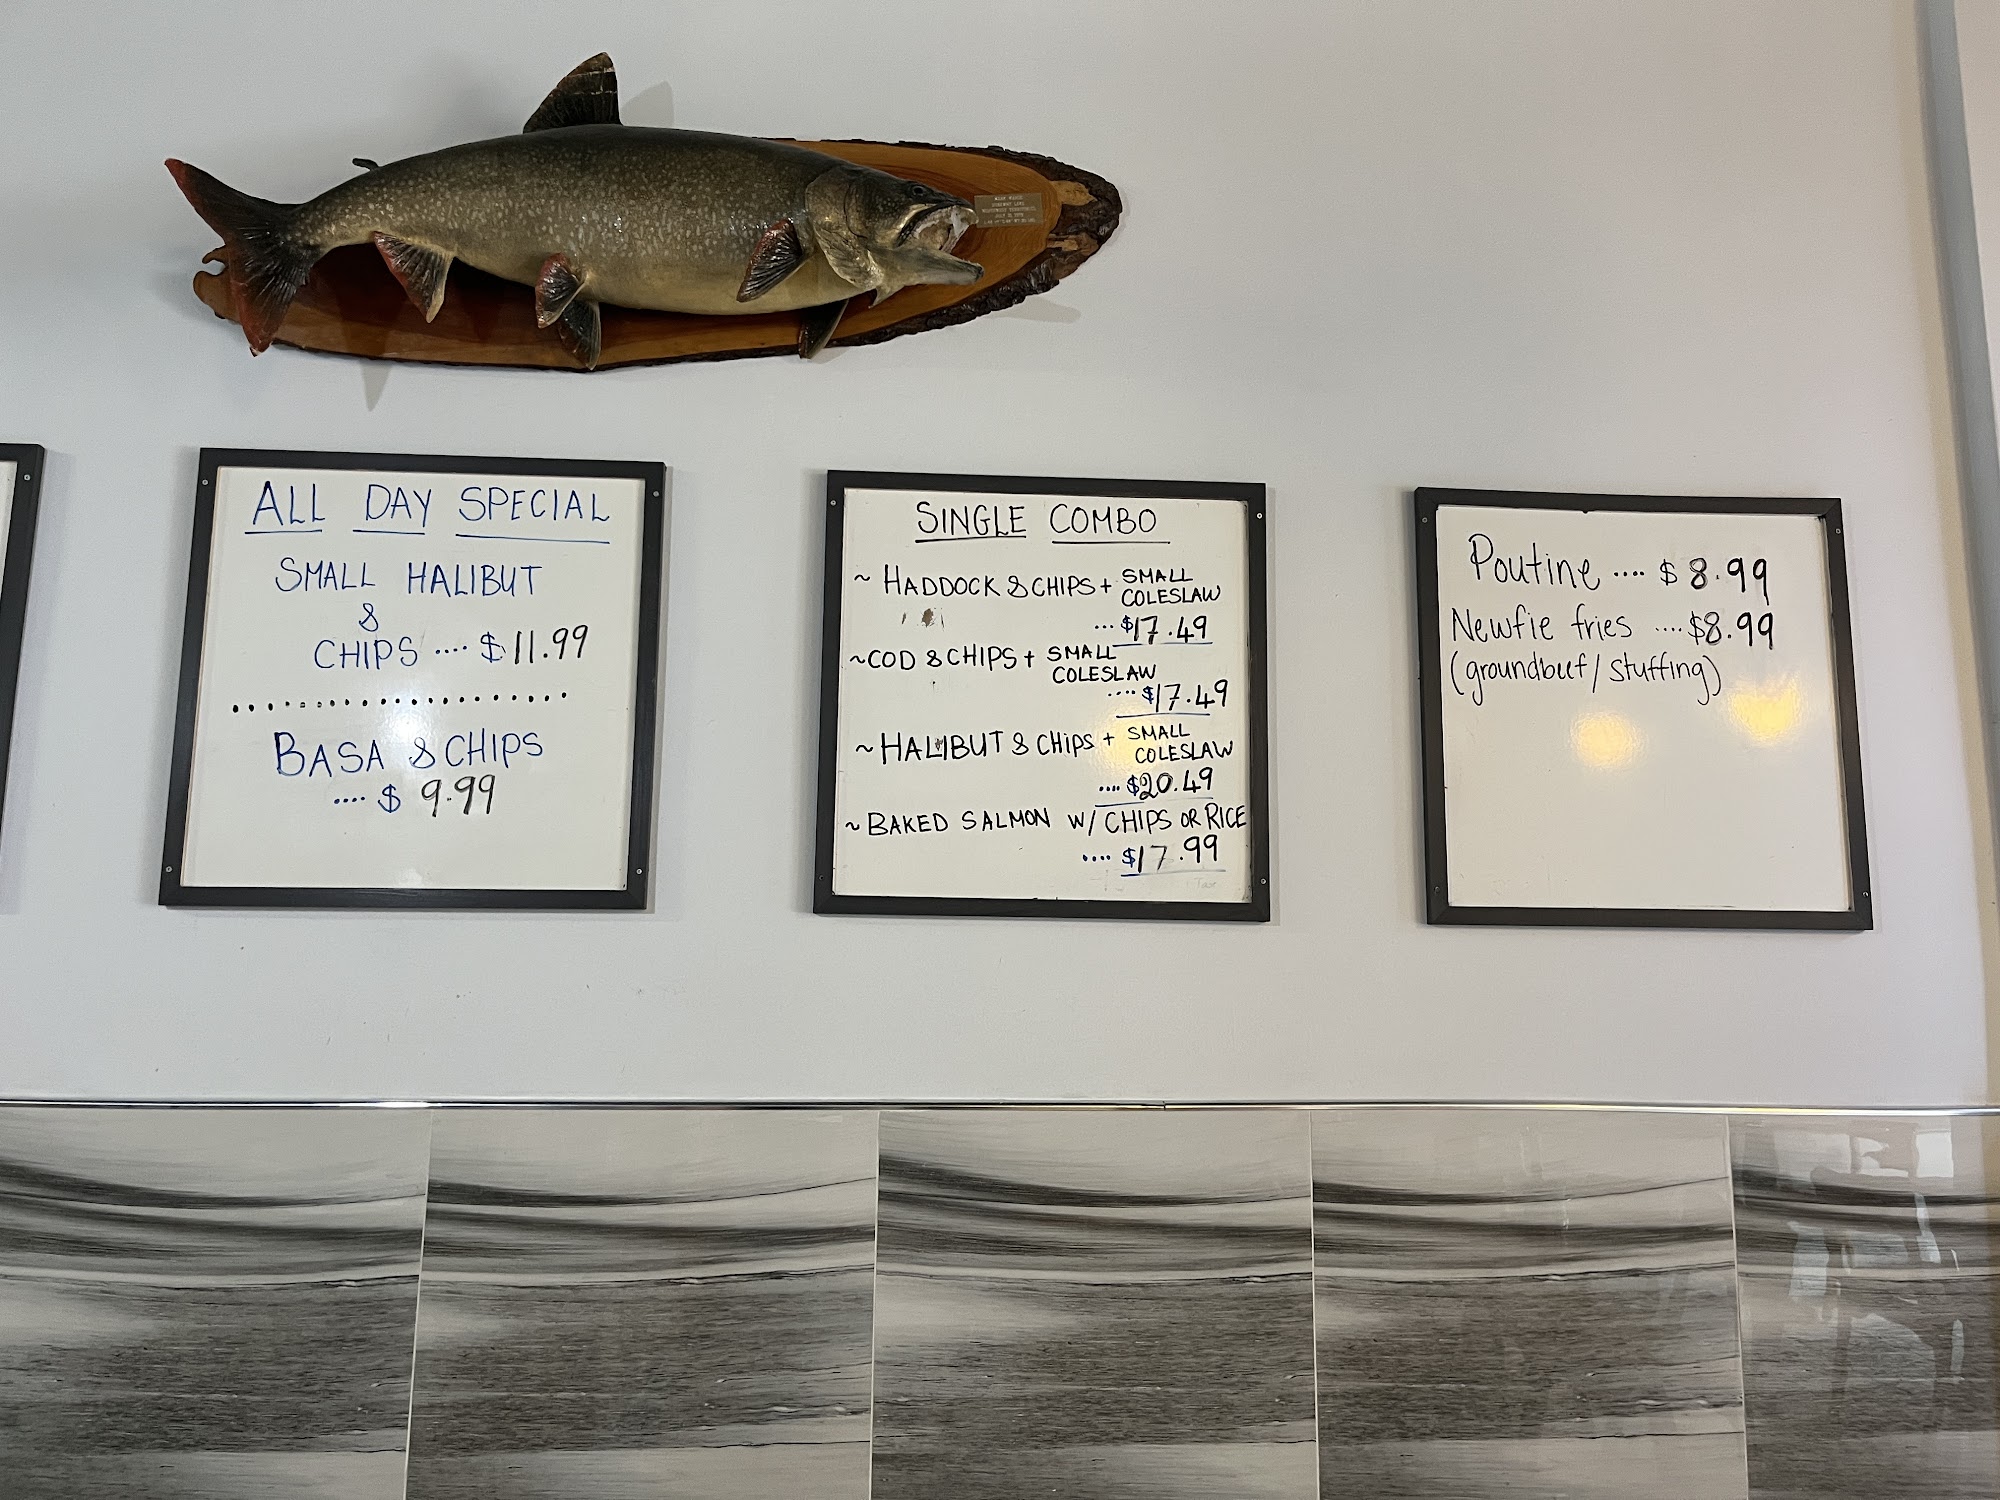 ALL DAY SPECIAL
SMALL HALIBUT
&
CHIPS .... $11.99
BASA & CHIPS
.... $ 9.99
SINGLE COMBO
~ HADDOCK & CHIPS + SMALL
COLESLAW
... $17.49
~COD & CHIPS + SMALL
COLESLAW
.... $17.49
~ HALIBUT & CHiPs + SMALL
COLESLAW
.... $20.49
~ BAKED SALMON W/ CHIPS OR RICE
.... $17.99
Poutine .... $ 8.99
Newfie fries .... $8.99
(groundbeef/stuffing)